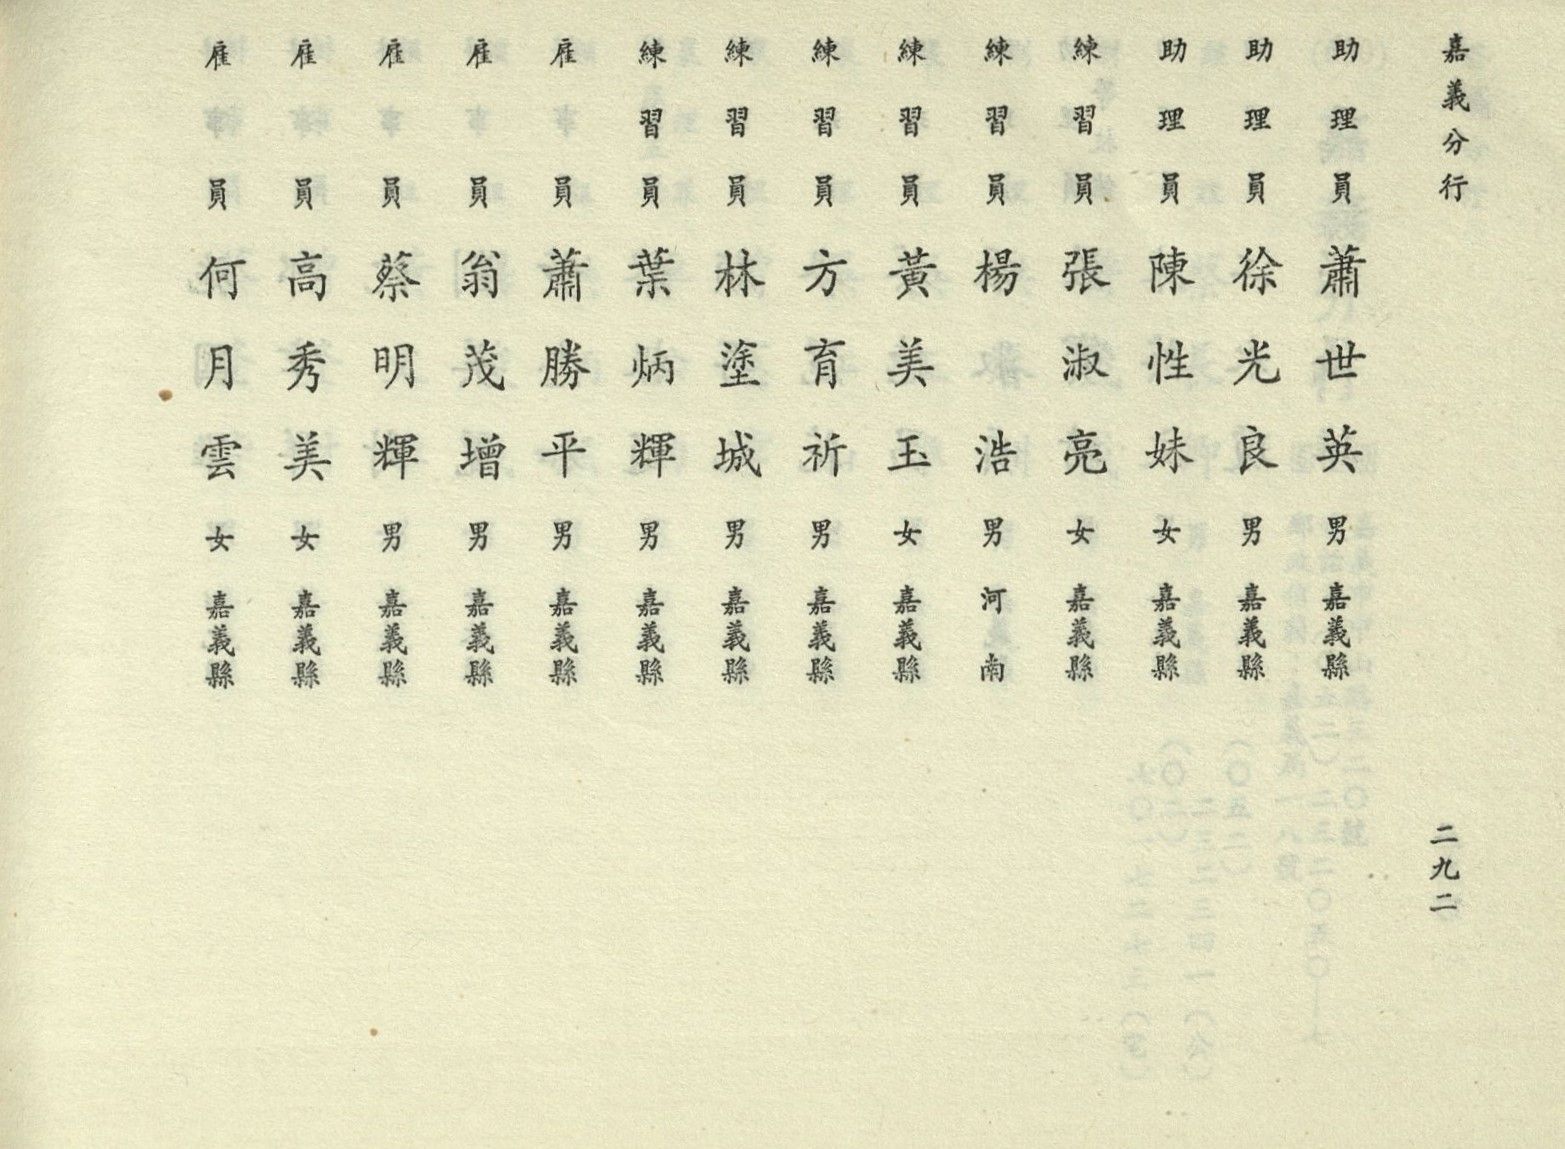 嘉義分行
二九二
助理員 蕭世英 男 嘉義縣
助理員 徐光良 男 嘉義縣
助理員 陳性妹 女 嘉義縣
練習員 張淑亮 女 嘉義縣
練習員 楊浩 男 河南
練習員 黃美玉 女 嘉義縣
練習員 方育祈 男 嘉義縣
練習員 林塗城 男 嘉義縣
練習員 葉炳輝 男 嘉義縣
雇員 蕭勝平 男 嘉義縣
雇員 翁茂增 男 嘉義縣
雇員 蔡明輝 男 嘉義縣
雇員 高秀美 女 嘉義縣
雇員 何月雲 女 嘉義縣